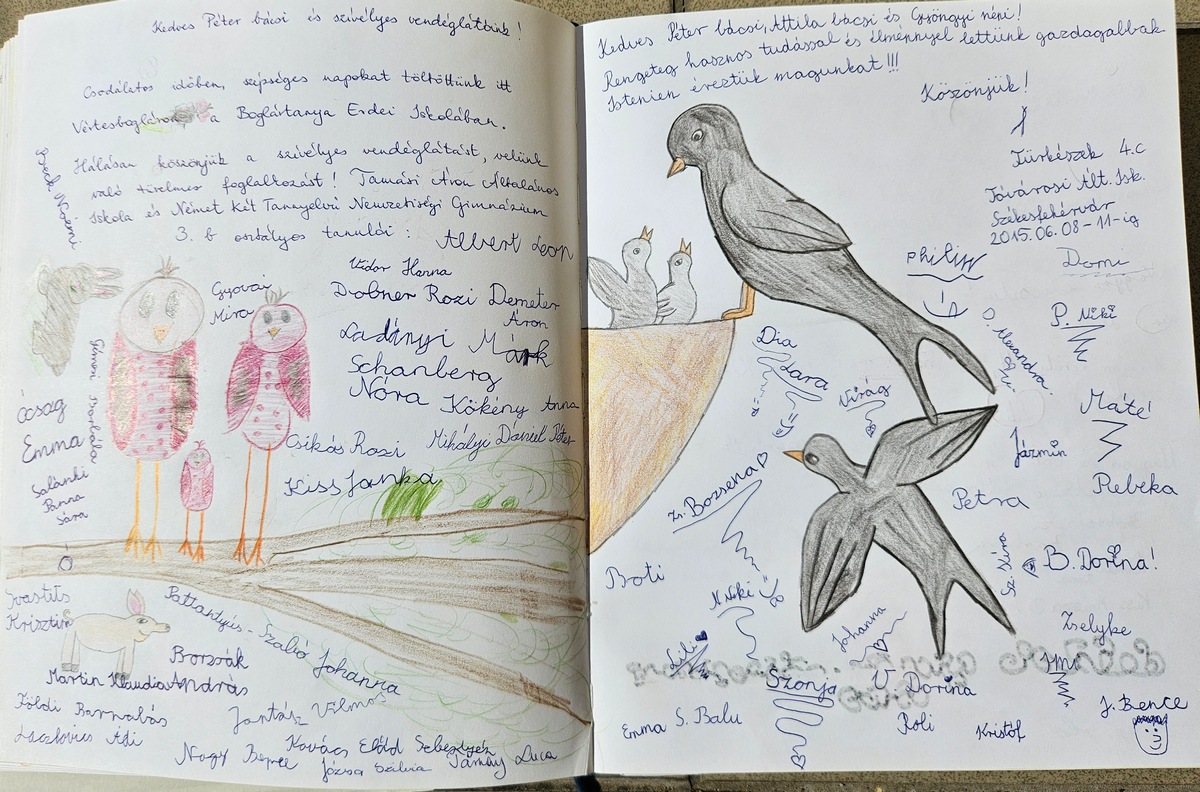 Kedves Péter bácsi és szívélyes vendéglátóink!
Csodálatos időben, szépséges napokat töltöttünk itt
a Boglártanya Erdei Iskolában.
Hálásan köszönjük a szívélyes vendéglátást, velünk
való türelmes foglalkozást! Tamási Áron Általános
Iskola és Német két Tannyelvű Nemzetiségi Gimnázium
3. b osztályos tanulói:
Albert Leon
Vidor Hanna
Gyovai
Míra
Dobner Rozi Demeter
Áron
Ladányi Márk
Schanberg
Nóra
Kökény Anna
Csikós Rozi
Mihályi Dániel Péter
Kiss Janka
Ócsag
Emma
Salánki
Panna
Sára
Krisztin
Pattantyús-Szabó Johanna
Borzák
András
Martin Klaudia
Földi Barnabás
Jantász Vilmos
Laczlovics Adi
Nagy Bence
Kovács Előd Sebestyén
Józsa Szilvia
Tamay Luca
Kedves Péter bácsi, Attila bácsi és Gyöngyi néni!
Rengeteg hasznos tudással és élménnyel lettünk gazdagabbak
Istenien éreztük magunkat!!!
Köszönjük!
Fürkészek 4.c
Tóvárosi Ált. Isk.
Székesfehérvár
2015.06.08-11-ig
Philipp
Domi
P. Niki
O. Alexandra
Dia
Lara
Virág
Máté
Jázmin
Rebeka
Zs. Bozsena
Petra
Sz. Kíra
B. Dorina!
Boti
N. Niki
Johanna
Zselyke
Lili
Imi
Szonja
V. Dorina
J. Bence
Emma S. Balu
Roli
Kristóf